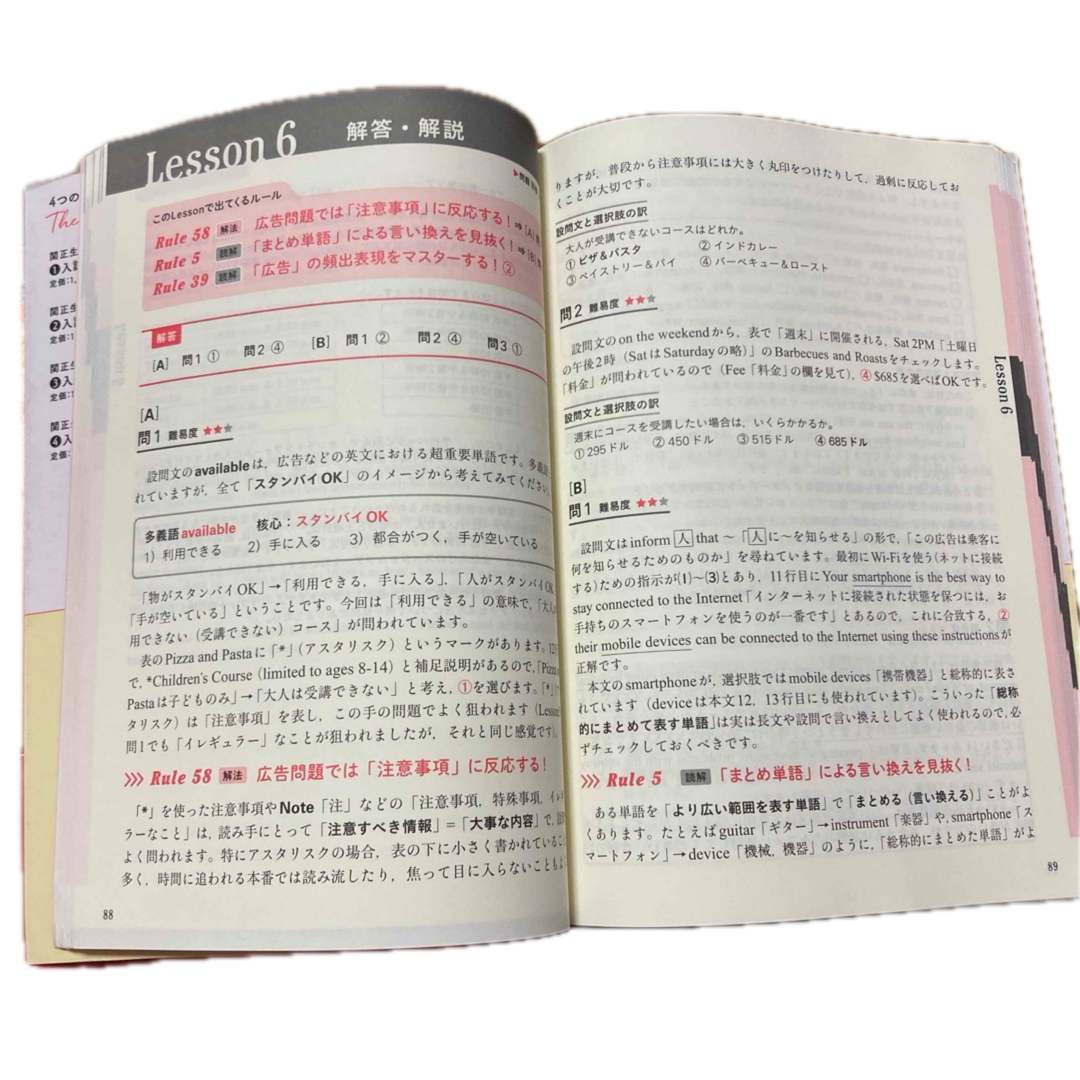 4つの
The
関正生
❶入試
定価:1,
関正生
❷入試
定価:1
関正生
❸入
定価:1
関正生
❹入
定価:
Lesson 6 解答・解説
▶問題
このLessonで出てくるルール
Rule 58 解法 広告問題では「注意事項」に反応する!⇒[A]
Rule 5 読解 「まとめ単語」による言い換えを見抜く!⇒[B]
Rule 39 読解 「広告」の頻出表現をマスターする!②
解答
[A] 問1 ① 問2 ④ [B] 問1 ② 問2 ④ 問3 ①
[A]
問1 難易度 ★★★
設問文のavailableは,広告などの英文における超重要単語です。多義語
れていますが,全て「スタンバイOK」のイメージから考えてみてください
多義語 available 核心:スタンバイOK
1) 利用できる 2) 手に入る 3) 都合がつく,手が空いている
「物がスタンバイOK」→「利用できる,手に入る」,「人がスタンバイOK
「手が空いている」ということです。今回は「利用できる」の意味で,「大人
用できない(受講できない)コース」が問われています。
表のPizza and Pastaに「*」(アスタリスク)というマークがあります。12
で,*Children's Course (limited to ages 8-14) と補足説明があるので,「Pizza
Pastaは子どものみ」→「大人は受講できない」と考え,①を選びます。「*」
タリスク)は「注意事項」を表し,この手の問題でよく狙われます(Lesson
問1でも「イレギュラー」なことが狙われましたが,それと同じ感覚です)。
>>> Rule 58 解法 広告問題では「注意事項」に反応する!
「*」を使った注意事項やNote「注」などの「注意事項,特殊事項,イレギ
ラーなこと」は,読み手にとって「注意すべき情報」=「大事な内容」で,設
よく問われます。特にアスタリスクの場合,表の下に小さく書かれているこ
多く,時間に追われる本番では読み流したり,焦って目に入らないことも
88
りますが,普段から注意事項には大きく丸印をつけたりして,過剰に反応してお
くことが大切です。
設問文と選択肢の訳
大人が受講できないコースはどれか。
① ピザ&パスタ ② インドカレー
③ ペイストリー&パイ ④ バーベキュー&ロースト
問2 難易度 ★★★
設問文のon the weekendから,表で「週末」に開催される,Sat 2PM「土曜日
の午後2時(SatはSaturdayの略)」のBarbecues and Roastsをチェックします。
「料金」が問われているので(Fee「料金」の欄を見て),④ $685を選べばOKです。
設問文と選択肢の訳
週末にコースを受講したい場合は,いくらかかるか。
① 295ドル ② 450ドル ③ 515ドル ④ 685ドル
[B]
問1 難易度 ★★★
設問文はinform 人 that ~「人に~を知らせる」の形で,「この広告は乗客に
何を知らせるためのものか」を尋ねています。最初にWi-Fiを使う(ネットに接続
する)ための指示が(1)~(3)とあり,11行目にYour smartphone is the best way to
stay connected to the Internet「インターネットに接続された状態を保つには,お
手持ちのスマートフォンを使うのが一番です」とあるので,これに合致する,②
their mobile devices can be connected to the Internet using these instructionsが
正解です。
本文のsmartphoneが,選択肢ではmobile devices「携帯機器」と総称的に表さ
れています(deviceは本文12,13行目にも使われています)。こういった「総称
的にまとめて表す単語」は実は長文や設問で言い換えとしてよく使われるので,必
ずチェックしておくべきです。
>>> Rule 5 読解 「まとめ単語」による言い換えを見抜く!
ある単語を「より広い範囲を表す単語」で「まとめる(言い換える)」ことがよ
くあります。たとえばguitar「ギター」→instrument「楽器」や,smartphone「ス
マートフォン」→device「機械,機器」のように,「総称的にまとめた単語」がよ
89
Lesson 6